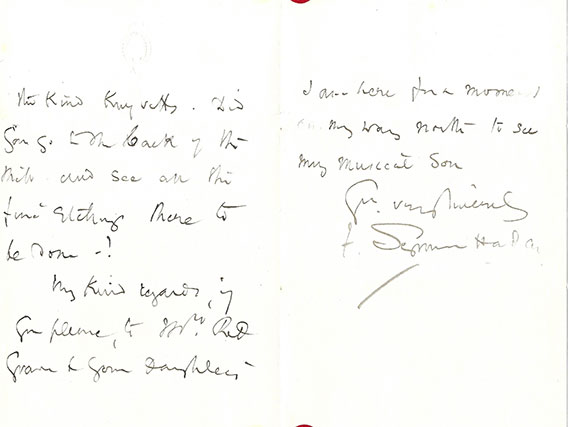 the Kind Knyvetts. Did
you go to the back of the
Mill and see all the
fine Etchings there to
be done -!
My Kind regards, if
you please, to Mrs. Red
Grave & your Daughters
I am here for a moment
on my way north to see
my musical Son
Yrs. very sincerely
F. Seymour Haden